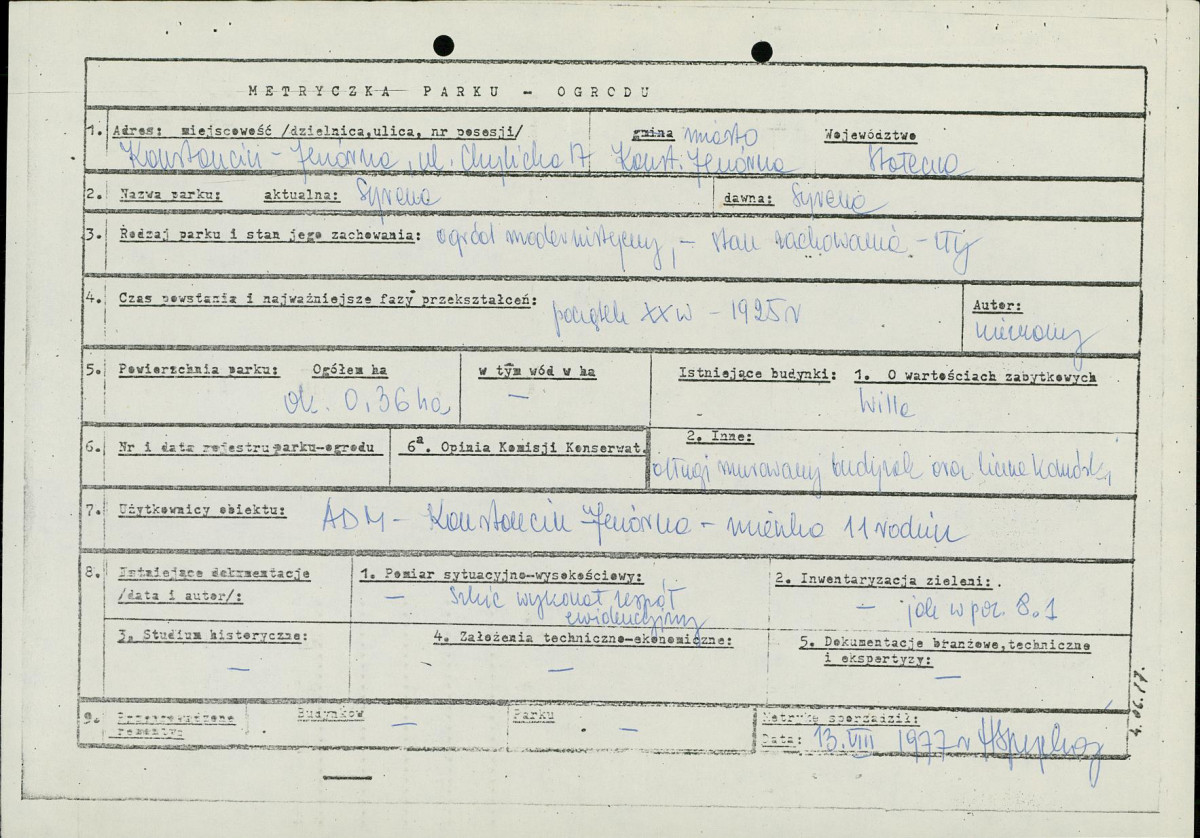 METRYCZKA PARKU - OGRODU
1. Adres: miejscowość /dzielnica,ulica, nr posesji/ gmina miasto Województwo
Konstancin-Jeziorna, ul. Chylicka 17 Konst. Jeziorna Stołeczne
2. Nazwa parku: aktualna: Syrena dawna: Syrena
3. Rodzaj parku i stan jego zachowania: ogród modernistyczny, - stan zachowania - zły
4. Czas powstania i najważniejsze fazy przekształceń: początek XXw - 1925r Autor:
nieznany
5. Powierzchnia parku: Ogółem ha w tym wód w ha Istniejące budynki: 1. O wartościach zabytkowych
ok. 0,36 ha — Willa
6. Nr i data rejestru parku-ogrodu 6a. Opinia Komisji Konserwat. 2. Inne:
długi murowany budynek oraz liczne komórki
7. Użytkownicy obiektu: ADM - Konstancin Jeziorna - mieszka 11 rodzin
8. Istniejące dokumentacje /data i autor/: 1. Pomiar sytuacyjno-wysokościowy: 2. Inwentaryzacja zieleni:
— Szkic wykonał zespół ewidencyjny — jak w poz. 8.1
3. Studium historyczne: 4. Założenia techniczno-ekonomiczne: 5. Dokumentacje branżowe,techniczne
i ekspertyzy:
— — —
9. Przeprowadzone remonty Budynków — Parku — Metrykę sporządził:
Data: 13.VIII 1977r
4.06.17.